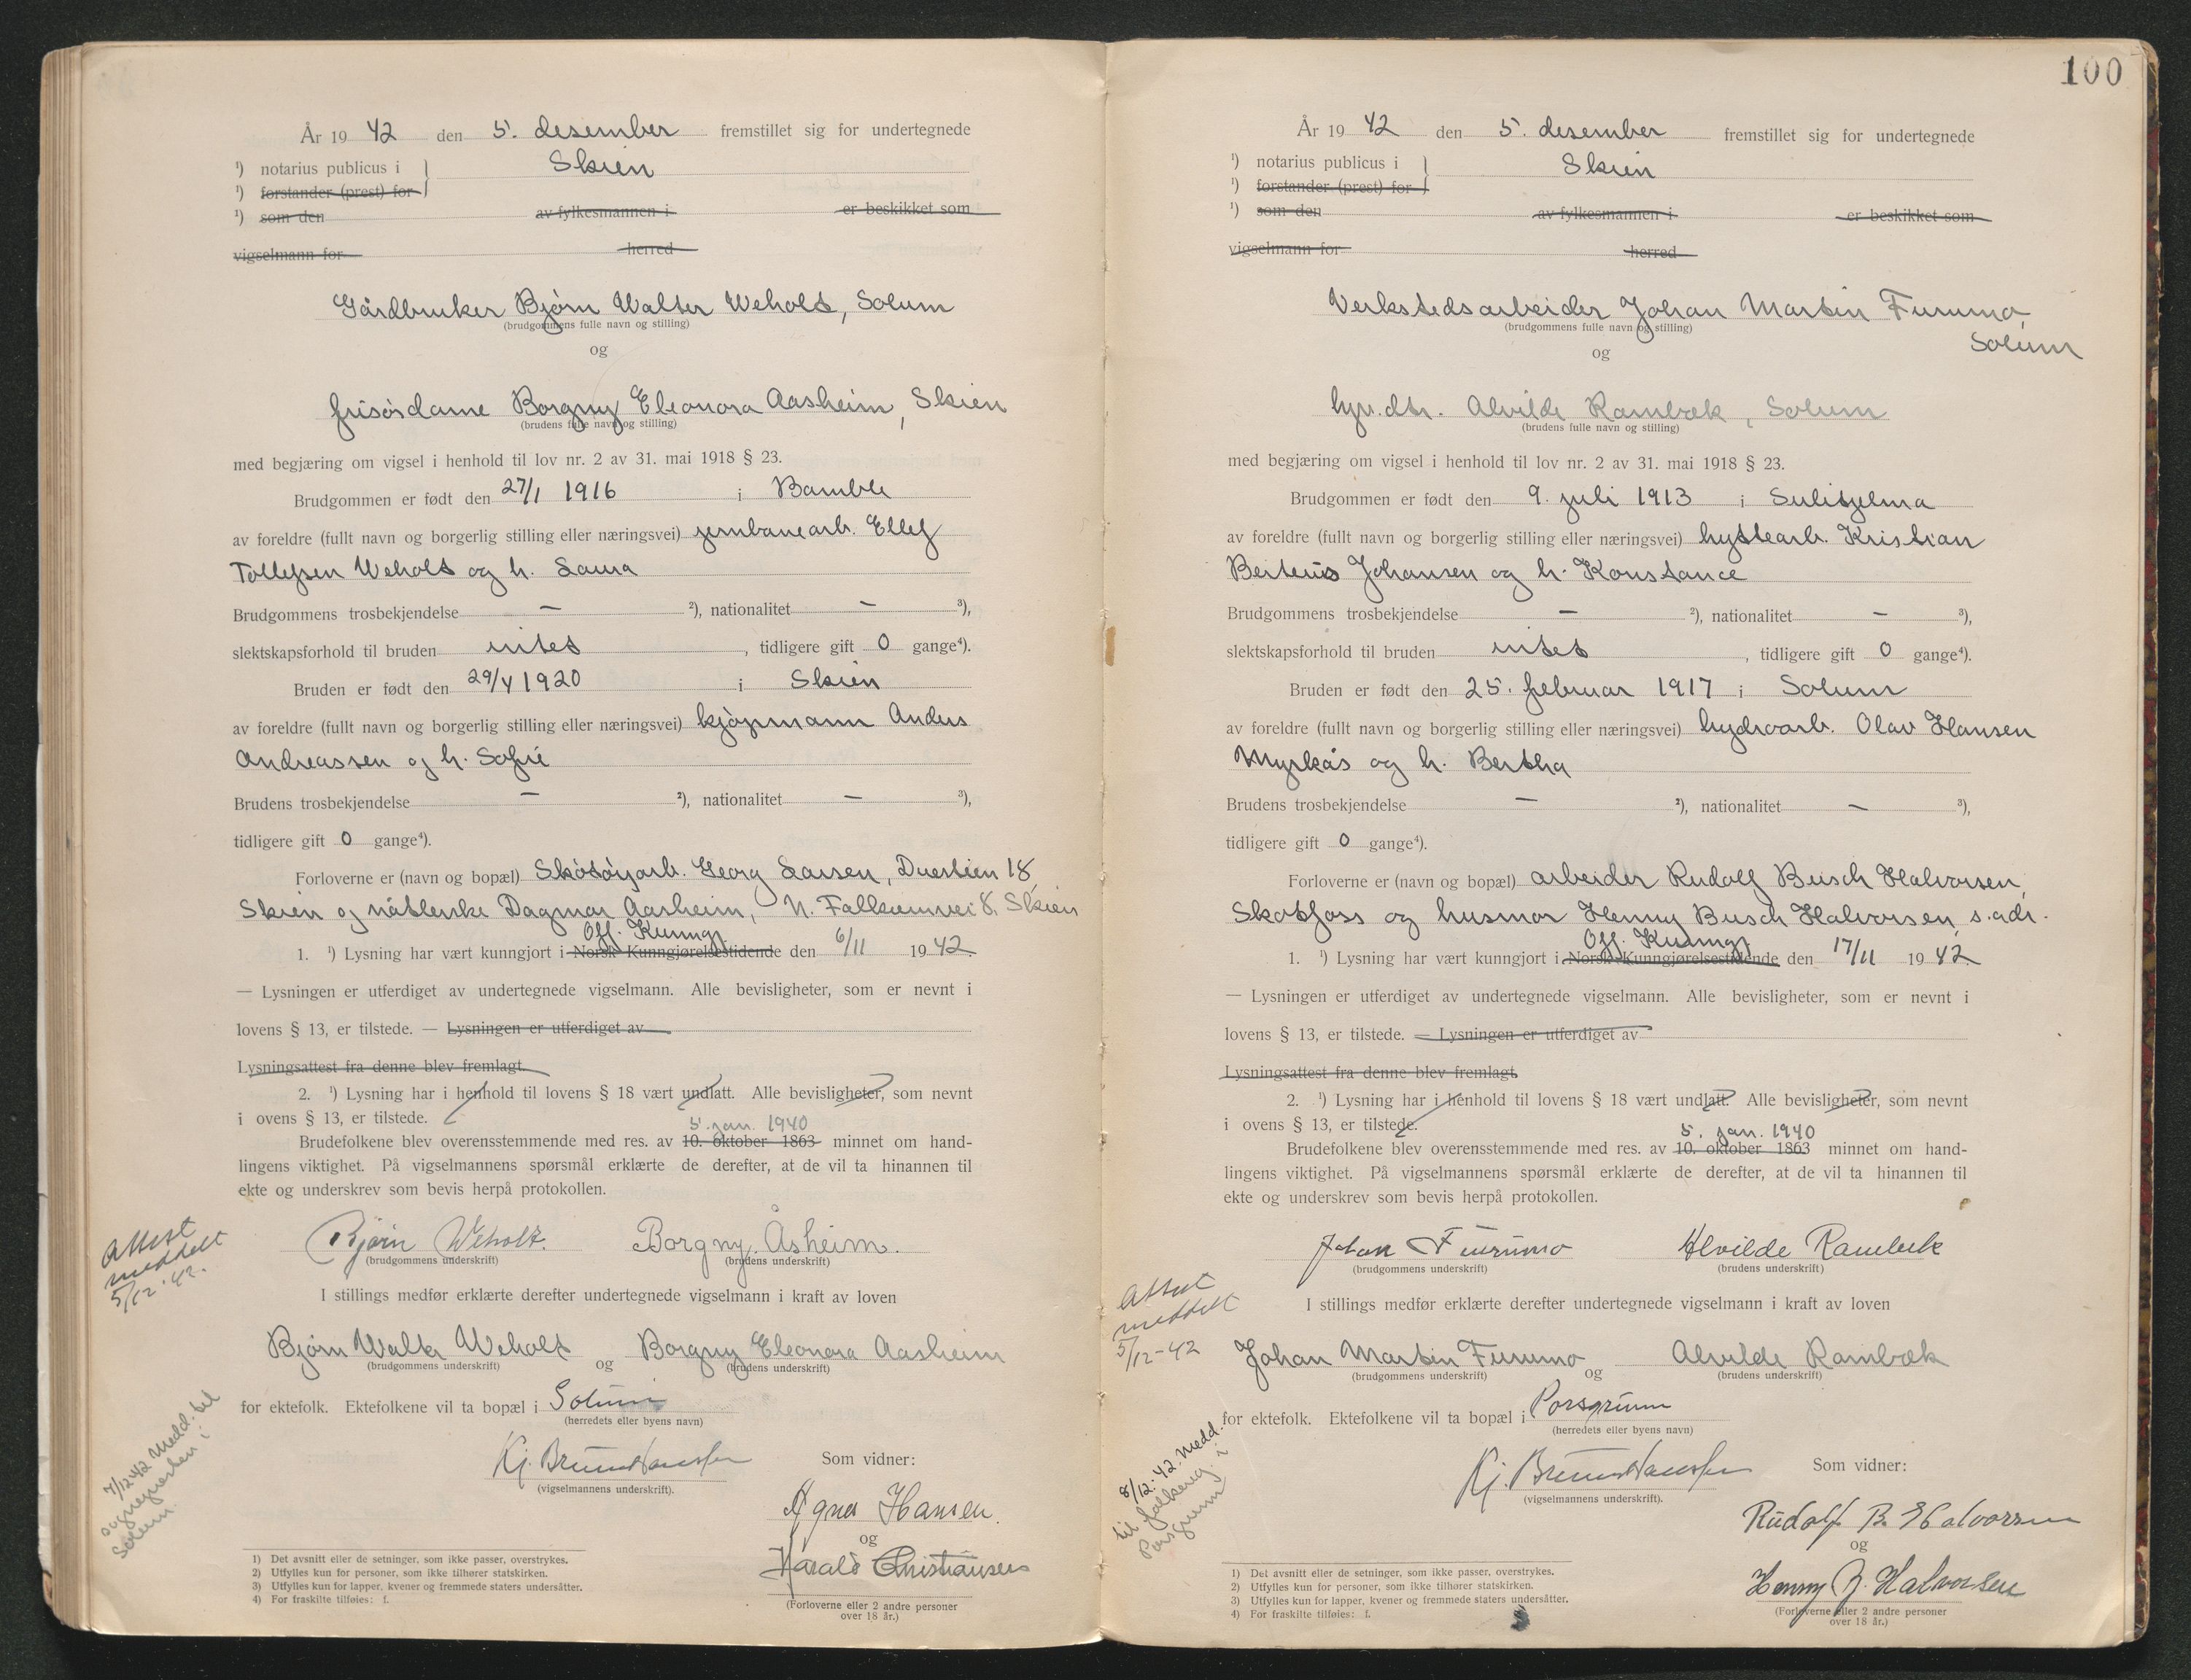 År 1942 den 5. desember fremstillet sig for undertegnede
¹) notarius publicus i Skien
¹) forstander (prest) for
¹) som den av fylkesmannen i er beskikket som
vigselmann for herred
Gårdbruker Bjørn Walter Weholt, Solum
(brudgommens fulle navn og stilling)
og
frisørdame Borgny Eleonora Aasheim, Skien
(brudens fulle navn og stilling)
med begjæring om vigsel i henhold til lov nr. 2 av 31. mai 1918 § 23.
Brudgommen er født den 27/1 1916 i Bamble
av foreldre (fullt navn og borgerlig stilling eller næringsvei) jernbanearb. Ellef
Tollefsen Weholt og h. Laura
Brudgommens trosbekjendelse — ²), nationalitet — ³),
slektskapsforhold til bruden intet, tidligere gift 0 gange⁴).
Bruden er født den 29/4 1920 i Skien
av foreldre (fullt navn og borgerlig stilling eller næringsvei) kjøpmann Anders
Andreassen og h. Sofie
Brudens trosbekjendelse — ²), nationalitet — ³),
tidligere gift 0 gange⁴).
Forloverne er (navn og bopæl) Skotøyarb. Georg Larsen, Duestien 18,
Skien og nåtlerske Dagmar Aasheim, N. Falkumvei 8, Skien
Off. Kunngj.
1. ¹) Lysning har vært kunngjort i Norsk Kunngjørelsestidende den 6/11 1942.
— Lysningen er utferdiget av undertegnede vigselmann. Alle bevisligheter, som er nevnt i
lovens § 13, er tilstede. — Lysningen er utferdiget av
Lysningsattest fra denne blev fremlagt.
2. ¹) Lysning har i henhold til lovens § 18 vært undlatt. Alle bevisligheter, som nevnt
i ovens § 13, er tilstede.
5. jan. 1940
Brudefolkene blev overensstemmende med res. av 10. oktober 1863 minnet om hand-
lingens viktighet. På vigselmannens spørsmål erklærte de derefter, at de vil ta hinannen til
ekte og underskrev som bevis herpå protokollen.
Attest
meddelt
5/12 '42.
Bjørn Weholt. Borgny Åsheim.
(brudgommens underskrift) (brudens underskrift)
I stillings medfør erklærte derefter undertegnede vigselmann i kraft av loven
Bjørn Walter Weholt og Borgny Eleonora Aasheim
(brudgommens underskrift) (brudens underskrift)
for ektefolk. Ektefolkene vil ta bopæl i Solum
(herredets eller byens navn)
7/12-42 Medd. til
sognepresten i
Solum.
Kj. Bruun Hanssen
(vigselmannens underskrift).
Som vidner:
Agnes Hansen.
og
Harald Christiansen
(Forloverne eller 2 andre personer
over 18 år.)
1) Det avsnitt eller de setninger, som ikke passer, overstrykes.
2) Utfylles kun for personer, som ikke tilhører statskirken.
3) Utfylles kun for lapper, kvener og fremmede staters undersåtter.
4) For fraskilte tilføies: f.
100
År 1942 den 5. desember fremstillet sig for undertegnede
¹) notarius publicus i Skien
¹) forstander (prest) for
¹) som den av fylkesmannen i er beskikket som
vigselmann for herred
Verkstedsarbeider Johan Martin Furumo,
Solum
(brudgommens fulle navn og stilling)
og
hjv. dtr. Alvilde Rambæk, Solum
(brudens fulle navn og stilling)
med begjæring om vigsel i henhold til lov nr. 2 av 31. mai 1918 § 23.
Brudgommen er født den 9. juli 1913 i Sulitjelma
av foreldre (fullt navn og borgerlig stilling eller næringsvei) hyttearb. Kristian
Berteus Johansen og h. Konstance
Brudgommens trosbekjendelse — ²), nationalitet — ³),
slektskapsforhold til bruden intet, tidligere gift 0 gange⁴).
Bruden er født den 25. februar 1917 i Solum
av foreldre (fullt navn og borgerlig stilling eller næringsvei) hydroarb. Olav Hansen
Myrkås og h. Bertha
Brudens trosbekjendelse — ²), nationalitet — ³),
tidligere gift 0 gange⁴).
Forloverne er (navn og bopæl) arbeider Rudolf Busch Halvorsen,
Skotfoss og husmor Henny Busch Halvorsen, s.adr.
Off. Kunngj.
1. ¹) Lysning har vært kunngjort i Norsk Kunngjørelsestidende den 17/11 1942.
— Lysningen er utferdiget av undertegnede vigselmann. Alle bevisligheter, som er nevnt i
lovens § 13, er tilstede. — Lysningen er utferdiget av
Lysningsattest fra denne blev fremlagt.
2. ¹) Lysning har i henhold til lovens § 18 vært undlatt. Alle bevisligheter, som nevnt
i ovens § 13, er tilstede.
5. jan. 1940
Brudefolkene blev overensstemmende med res. av 10. oktober 1863 minnet om hand-
lingens viktighet. På vigselmannens spørsmål erklærte de derefter, at de vil ta hinannen til
ekte og underskrev som bevis herpå protokollen.
Johan Furumo Alvilde Rambek
(brudgommens underskrift) (brudens underskrift)
Attest
meddelt
5/12-42
I stillings medfør erklærte derefter undertegnede vigselmann i kraft av loven
Johan Martin Furumo og Alvilde Rambæk
(brudgommens underskrift) (brudens underskrift)
for ektefolk. Ektefolkene vil ta bopæl i Porsgrunn
(herredets eller byens navn)
8/12-42. Medd.
til folkereg. i
Porsgrunn
Kj. Bruun Hanssen
(vigselmannens underskrift).
Som vidner:
Rudolf B. Halvorsen
og
Henny B. Halvorsen
(Forloverne eller 2 andre personer
over 18 år.)
1) Det avsnitt eller de setninger, som ikke passer, overstrykes.
2) Utfylles kun for personer, som ikke tilhører statskirken.
3) Utfylles kun for lapper, kvener og fremmede staters undersåtter.
4) For fraskilte tilføies: f.